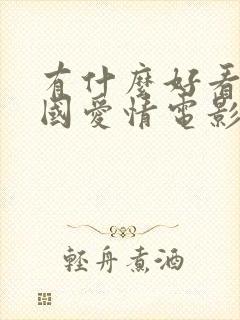 有什麼好看
國愛情電影
輕舟煮酒